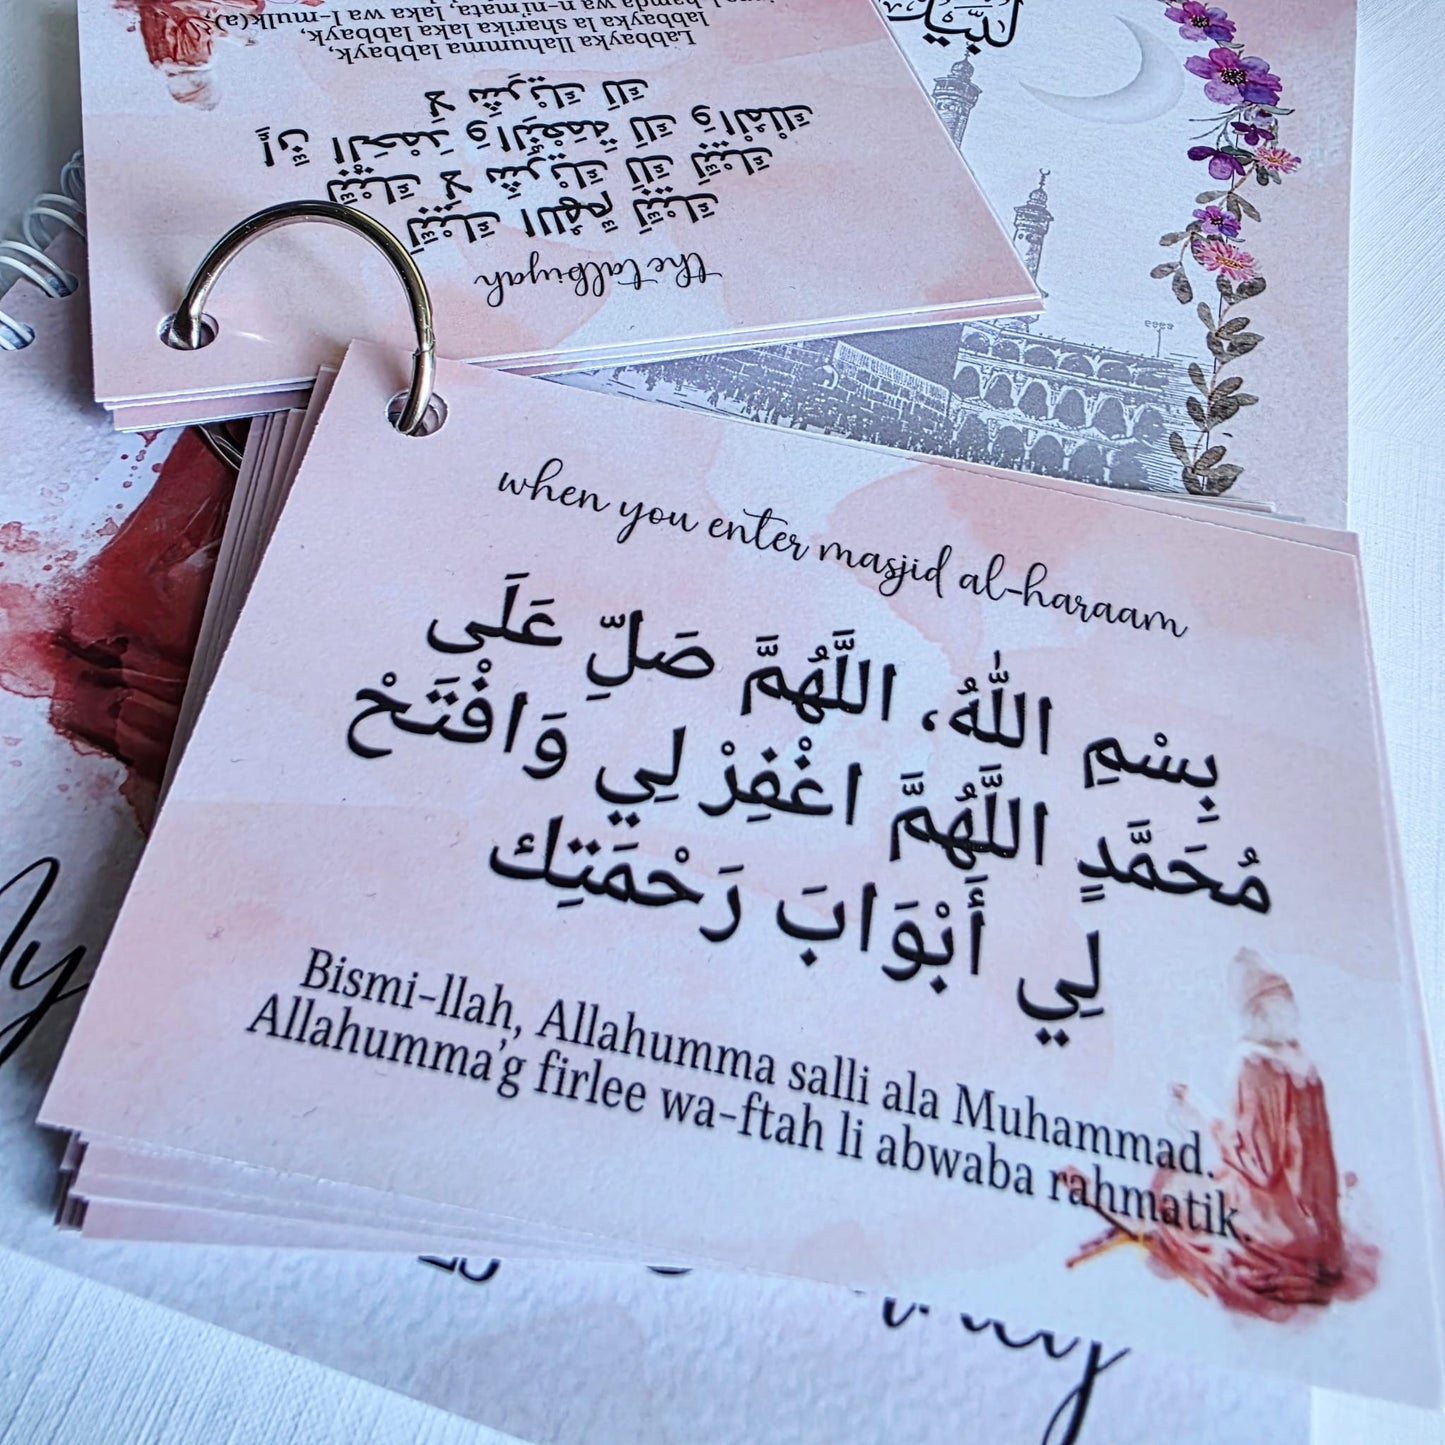 the talbiyah
لَبَّيْكَ اللَّهُمَّ لَبَّيْكَ
لَبَّيْكَ لَا شَرِيْكَ لَكَ لَبَّيْكَ
إِنَّ الْحَمْدَ وَالنِّعْمَةَ لَكَ وَالْمُلْكَ
لَا شَرِيْكَ لَكَ
Labbayka llahumma labbayk,
labbayka la sharika laka labbayk,
hamda wa n-ni'mata, laka wa l-mulk(a),
لبيك
when you enter masjid al-haraam
بِسْمِ اللّٰهُ، اللَّهُمَّ صَلِّ عَلَى
مُحَمَّدٍ اللَّهُمَّ اغْفِرْ لِي وَافْتَحْ
لِي أَبْوَابَ رَحْمَتِك
Bismi-llah, Allahumma salli ala Muhammad.
Allahumma'g firlee wa-ftah li abwaba rahmatik.
My